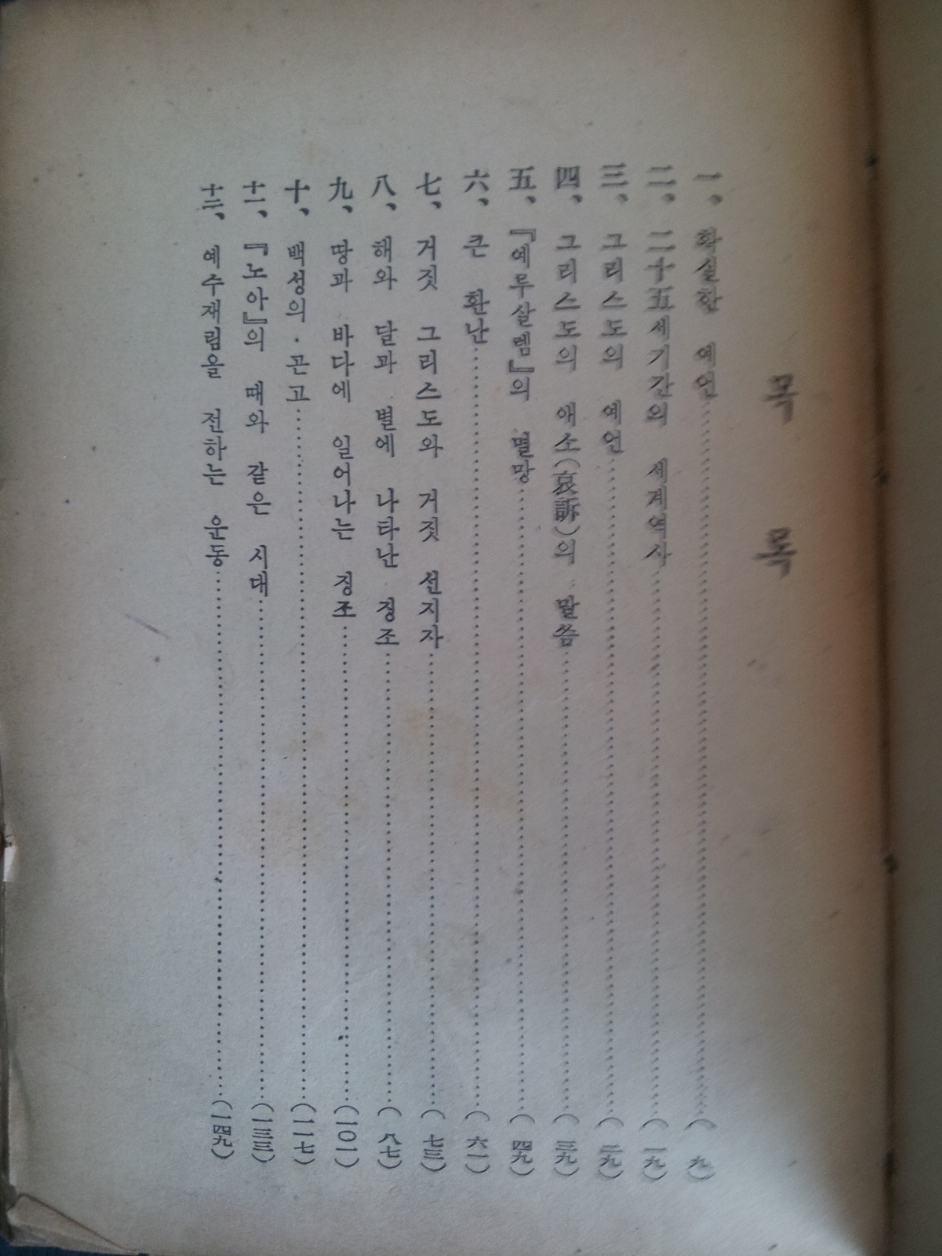 목 록
一、 확실한 예언……(九)
二、 二十五세기간의 세계역사……(一九)
三、 그리스도의 예언……(二九)
四、 그리스도의 애소(哀訴)의 말씀……(三九)
五、 『예루살렘』의 멸망……(四九)
六、 큰 환난……(六一)
七、 거짓 그리스도와 거짓 선지자……(七三)
八、 해와 달과 별에 나타난 징조……(八七)
九、 땅과 바다에 일어나는 징조……(一〇一)
十、 백성의·곤고……(一一七)
十一、 『노아』의 때와 같은 시대……(一三三)
十二、 예수재림을 전하는 운동……(一四九)